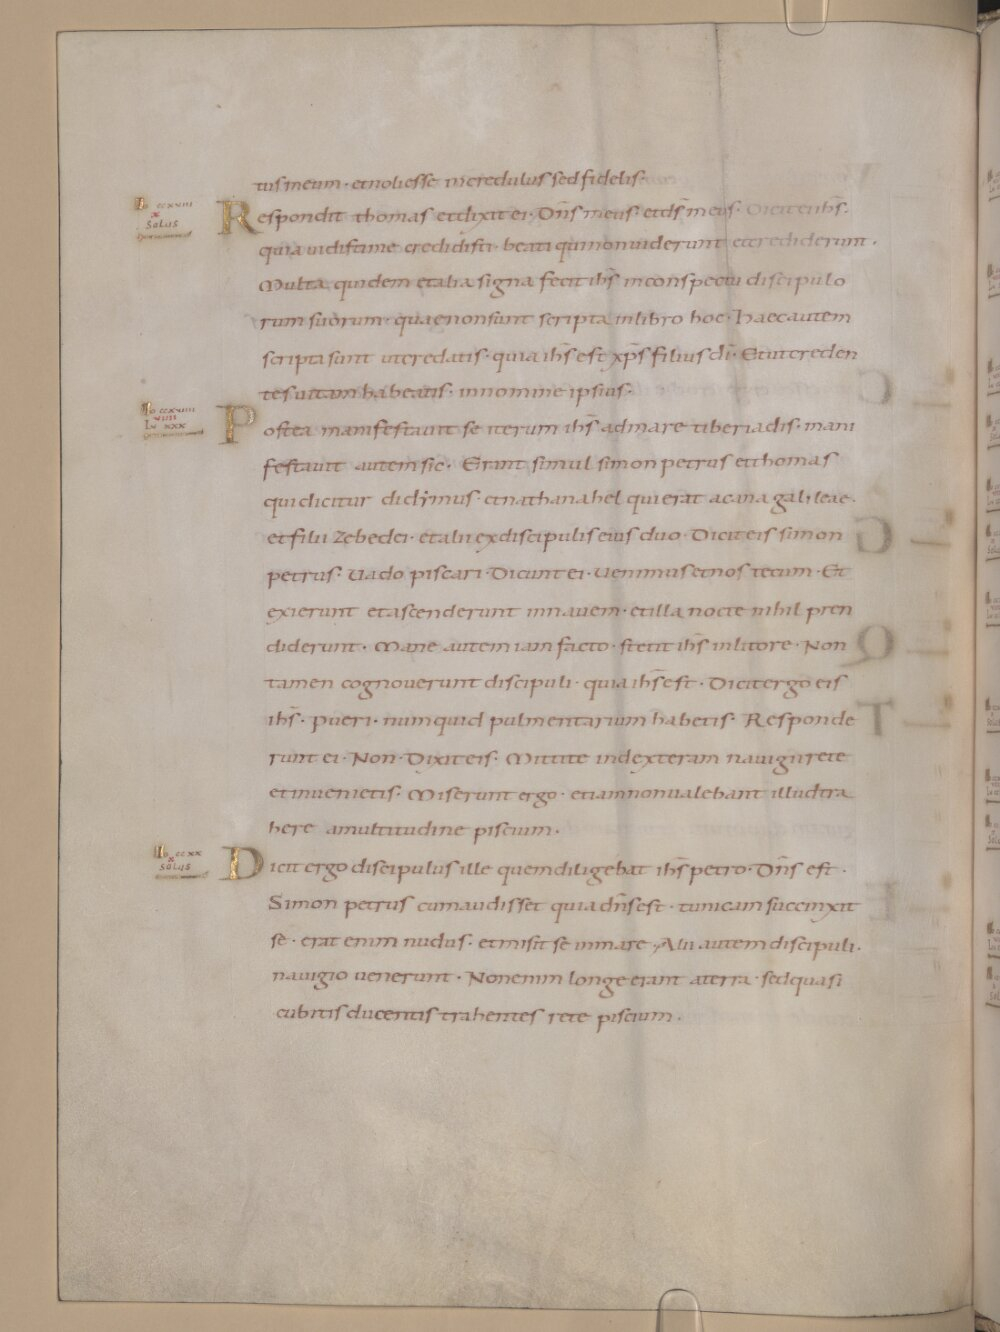 tus meum · et noli esse incredulus sed fidelis ·
Io ccxviii
x
Solus
Respondit thomas et dixit ei · Dn̄s meus et ds̄ meus · Dicit ei ih̄s ·
quia uidisti me credidisti · beati qui non uiderunt et crediderunt ·
Multa quidem et alia signa fecit ih̄s in conspectu discipulo
rum suorum · quae non sunt scripta in libro hoc · Haec autem
scripta sunt ut credatis · quia ih̄s est xp̄s filius dī · Et ut creden
tes uitam habeatis · in nomine ipsius ·
Io ccxviiii
viiii
Postea manifestauit se iterum ih̄s ad mare tiberiadis · mani
festauit autem sic · Erant simul simon petrus et thomas
qui dicitur didymus · et nathanahel qui erat a cana galileae ·
et filii Zebedei · et alii ex discipulis eius duo · Dicit eis simon
petrus · Uado piscari · Dicunt ei · Uenimus et nos tecum · Et
exierunt et ascenderunt in nauem · et illa nocte nihil pren
diderunt · Mane autem iam facto · stetit ih̄s in litore · Non
tamen cognouerunt discipuli · quia ih̄s est · Dicit ergo eis
ih̄s · pueri · numquid pulmentarium habetis · Responde
runt ei · Non · Dixit eis · Mittite in dexteram nauigii rete
et inuenietis · Miserunt ergo · et iam non ualebant illud tra
here a multitudine piscium ·
Io ccxx
x
Solus
Dicit ergo discipulus ille quem diligebat ih̄s petro · Dn̄s est ·
Simon petrus cum audisset quia dn̄s est · tunicam succinxit
se · erat enim nudus · et misit se in mare · Alii autem discipuli ·
nauigio uenerunt · Non enim longe erant a terra · sed quasi
cubitis ducentis trahentes rete piscium ·